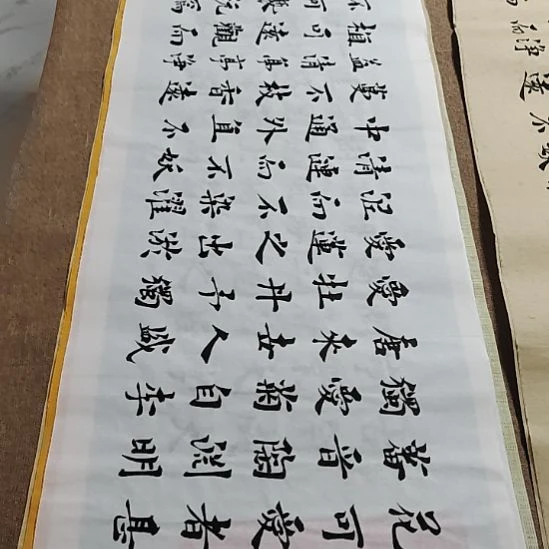 花可愛者甚
蕃晉陶淵明
獨愛菊自李
唐來世人盛
愛牡丹予獨
愛蓮之出淤
泥而不染濯
清漣而不妖
中通外直不
蔓不枝香遠
益清亭亭淨
植可遠觀而
不可褻玩焉
而淨遠不